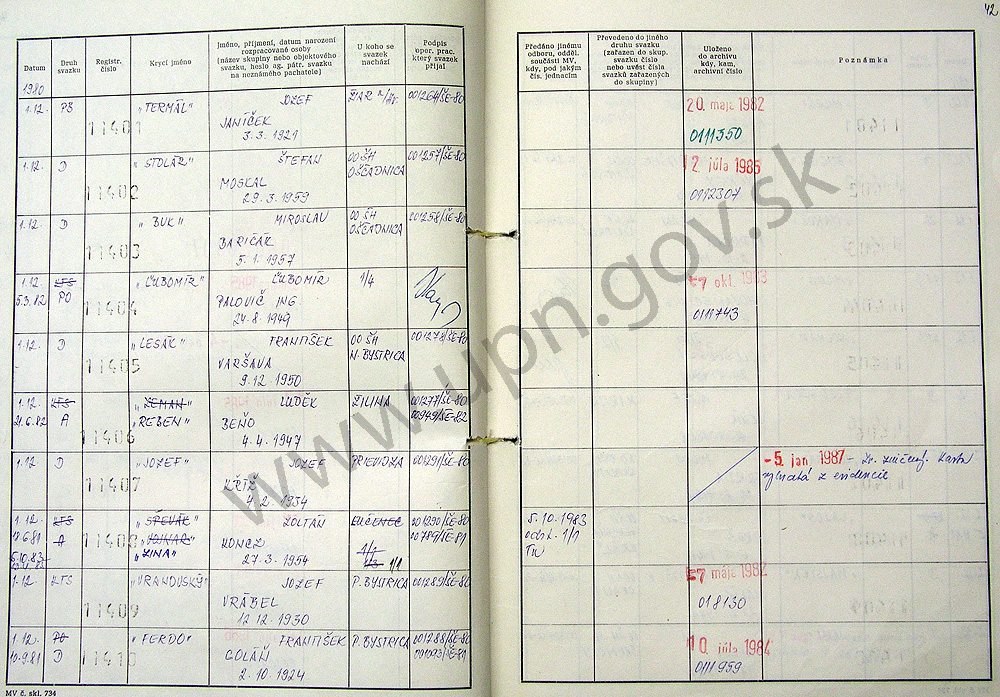 42
Datum
Druh svazku
Registr. číslo
Krycí jméno
Jméno, příjmení, datum narození rozpracované osoby (název skupiny nebo objektového svazku, heslo ag. pátr. svazku na neznámého pachatele)
U koho se svazek nachází
Podpis oper. prac. který svazek přijal
Předáno jinému odboru, odděl. součásti MV, kdy, pod jakým čís. jednacím
Převedeno do jiného druhu svazku (zařazen do skup. svazku číslo nebo uvést čísla svazků zařazených do skupiny)
Uloženo do archivu kdy, kam, archivní číslo
Poznámka
1980
1.12. PS 11401 "TERMÁL" JOZEF ŽIAR n/Hr. 001264/ŠE-80 20. mája 1982
JANÍČEK 0111350
3.3.1921
1.12. D 11402 "STOLÁR" ŠTEFAN OO ŠH 001257/ŠE-80 12. júla 1985
OŠČADNICA
MOSKAL 0112307
29.3.1959
1.12. D 11403 "BUK" MIROSLAV OO ŠH 001258/ŠE-80
OŠČADNICA
BARIČÁK
5.1.1957
1.12. KTS 11404 "ĽUBOMÍR" ĽUBOMÍR 1/4 -7 okt. 1983
5.3.82 PO PALOVIČ ING 0111743
24.8.1949
1.12. D 11405 "LESÁK" FRANTIŠEK OO ŠH 001278/ŠE-80
N. BYSTRICA
VARŠAVA
9.12.1950
1.12. KTS 11406 "ZEMAN" LUDĚK ŽILINA 001277/ŠE-80
21.6.82 A "REBEN" BEŇO 00949/ŠE-82
4.4.1947
1.12. D 11407 "JOZEF" JOZEF PRIEVIDZA 001291/ŠE-80 -5. jan. 1987
KŘÍŽ z evidencie
4.2.1954
1.12. KTS 11408 "SPEVÁK" ZOLTÁN LUČENEC 001290/ŠE-80 5.10.1983
17.6.81 A 00789/ŠE-81 odst. 1/1
5.10.83 "ZINA" KONCZ 1/1
27.3.1954 1/1
1.12 KTS 11409 "VRANOVSKÝ" JOZEF P. BYSTRICA 001289/ŠE-80 -7 mája 1982
VRÁBEL 018130
12.12.1930
1.12. PO 11410 "FERDO" FRANTIŠEK P. BYSTRICA 001288/ŠE-80 10. júla 1984
10.9.81 D GOLÁŇ 001093/ŠE-81 0111959
2.10.1924
MV č. skl. 734
www.upn.gov.sk